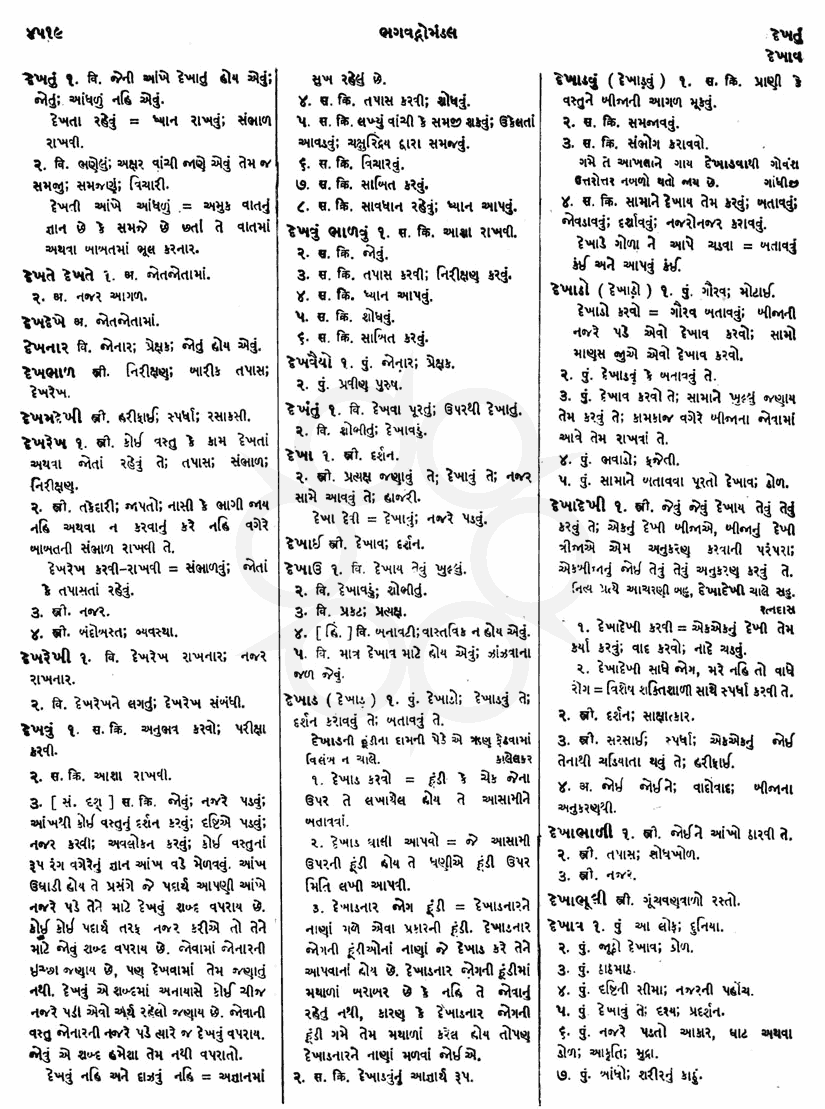 ૪૫૧૯
ભગવદ્ગોમંડલ
દેખતું
દેખાવ
દેખતું ૧. વિ. જેની આંખે દેખાતું હોય એવું;
જોતું; આંધળું નહિ એવું.
દેખતા રહેવું = ધ્યાન રાખવું; સંભાળ
રાખવી.
૨. વિ. ભણેલું; અક્ષર વાંચી જાણે એવું તેમ જ
સમજી; સમજણું; વિચારી.
દેખતી આંખે આંધળું = અમુક વાતનું
જ્ઞાન છે કે સમજે છે છતાં તે વાતમાં
અથવા બાબતમાં ભૂલ કરનાર.
દેખતે દેખતે ૧. અ. જોતજોતામાં.
૨. અ. નજર આગળ.
દેખદેખે અ. જોતજોતામાં.
દેખનાર વિ. જોનાર; પ્રેક્ષક; જોતું હોય એવું.
દેખભાળ સ્ત્રી. નિરીક્ષણ; બારીક તપાસ;
દેખરેખ.
દેખમદેખી સ્ત્રી. હરીફાઈ; સ્પર્ધા; રસાકસી.
દેખરેખ ૧. સ્ત્રી. કોઈ વસ્તુ કે કામ દેખતાં
અથવા જોતાં રહેવું તે; તપાસ; સંભાળ;
નિરીક્ષણ.
૨. સ્ત્રી. તકેદારી; જાપતો; નાસી કે ભાગી જાય
નહિ અથવા ન કરવાનું કરે નહિ વગેરે
બાબતની સંભાળ રાખવી તે.
દેખરેખ કરવી-રાખવી = સંભાળવું; જોતાં
કે તપાસતાં રહેવું.
૩. સ્ત્રી. નજર.
૪. સ્ત્રી. બંદોબસ્ત; વ્યવસ્થા.
દેખરેખી ૧. વિ. દેખરેખ રાખનાર; નજર
રાખનાર.
૨. વિ. દેખરેખને લગતું; દેખરેખ સંબંધી.
દેખવું ૧. સ. ક્રિ. અનુભવ કરવો; પરીક્ષા
કરવી.
૨. સ. ક્રિ. આશા રાખવી.
૩. [ સં. દૃશ્ ] સ. ક્રિ. જોવું; નજરે પડવું;
આંખથી કોઈ વસ્તુનું દર્શન કરવું; દૃષ્ટિએ પડવું;
નજર કરવી; અવલોકન કરવું; કોઈ વસ્તુનાં
રૂપ રંગ વગેરેનું જ્ઞાન આંખ વડે મેળવવું. આંખ
ઉઘાડી હોય તે પ્રસંગે જે પદાર્થ આપણી આંખે
નજરે પડે તેને માટે દેખવું શબ્દ વપરાય છે.
કોઈ કોઈ પદાર્થ તરફ નજર કરીએ તો તેને
માટે જોવું શબ્દ વપરાય છે. જોવામાં જોનારની
ઇચ્છા જણાય છે, પણ દેખવામાં તેમ જણાતું
નથી. દેખવું એ શબ્દમાં અનાયાસે કોઈ ચીજ
નજરે પડી એવો અર્થ રહેલો જણાય છે. જોવાની
વસ્તુ જોનારની નજરે પડે ત્યારે જ દેખવું વપરાય.
જોવું એ શબ્દ હમેશાં તેમ નથી વપરાતો.
દેખવું નહિ અને દાઝવું નહિ = અજ્ઞાનમાં
સુખ રહેલું છે.
૪. સ. ક્રિ. તપાસ કરવી; શોધવું.
૫. સ. ક્રિ. લખ્યું વાંચી કે સમજી શકવું; ઉકેલતાં
આવડવું; ચક્ષુરિંદ્રિય દ્વારા સમજવું.
૬. સ. ક્રિ. વિચારવું.
૭. સ. ક્રિ. સાબિત કરવું.
૮. સ. ક્રિ. સાવધાન રહેવું; ધ્યાન આપવું.
દેખવું ભાળવું ૧. સ. ક્રિ. આશા રાખવી.
૨. સ. ક્રિ. જોવું.
૩. સ. ક્રિ. તપાસ કરવી; નિરીક્ષણ કરવું.
૪. સ. ક્રિ. ધ્યાન આપવું.
૫. સ. ક્રિ. શોધવું.
૬. સ. ક્રિ. સાબિત કરવું.
દેખવૈયો ૧. પું. જોનાર; પ્રેક્ષક.
૨. પું. પ્રવીણ પુરુષ.
દેખંતું ૧. વિ. દેખવા પૂરતું; ઉપરથી દેખાતું.
૨. વિ. શોભીતું; દેખાવડું.
દેખા ૧. સ્ત્રી. દર્શન.
૨. સ્ત્રી. પ્રત્યક્ષ જણાવું તે; દેખાવું તે; નજર
સામે આવવું તે; હાજરી.
દેખા દેવી = દેખાવું; નજરે પડવું.
દેખાઈ સ્ત્રી. દેખાવ; દર્શન.
દેખાઉ ૧. વિ. દેખાય તેવું ખુલ્લું.
૨. વિ. દેખાવડું; શોભીતું.
૩. વિ. પ્રકટ; પ્રત્યક્ષ.
૪. [ હિં. ] વિ. બનાવટી; વાસ્તવિક ન હોય એવું.
૫. વિ. માત્ર દેખાવ માટે હોય એવું; ઝાંઝવાના
જળ જેવું.
દેખાડ ( દેખાડ઼ ) ૧. પું. દેખાડો; દેખાડવું તે;
દર્શન કરાવવું તે; બતાવવું તે.
દેખાડની હૂંડીના દામની પેઠે એ ઋણુ ફેડવામાં
વિલંબ ન ચાલે. કાલેલકર
૧. દેખાડ કરવો = હૂંડી કે ચેક જેના
ઉપર તે લખાયેલ હોય તે આસામીને
બતાવવાં.
૨. દેખાડ ઘાલી આપવો = જે આસામી
ઉપરની હૂંડી હોય તે ધણીએ હૂંડી ઉપર
મિતિ લખી આપવી.
૩. દેખાડનાર જોગ હૂંડી = દેખાડનારને
નાણાં મળે એવા પ્રકારની હૂંડી. દેખાડનાર
જોગની હૂંડીઓનાં નાણાં જે દેખાડ કરે તેને
આપવાનાં હોય છે. દેખાડનાર જોગની હૂંડીમાં
મથાળાં બરાબર છે કે નહિ તે જોવાનું
રહેતું નથી, કારણ કે દેખાડનાર જોગની
હૂંડી ગમે તેમ મથાળાં કરેલ હોય તોપણ
દેખાડનારને નાણાં મળવાં જોઈએ.
૨. સ. ક્રિ. દેખાડવુંનું આજ્ઞાર્થ રૂપ.
દેખાડવું ( દેખાડ઼વું ) ૧. સ. ક્રિ. પ્રાણી કે
વસ્તુને બીજાની આગળ મૂકવું.
૨. સ. ક્રિ. સમજાવવું.
૩. સ. ક્રિ. સંભોગ કરાવવો.
ગમે તે આખલાને ગાય દેખાડવાથી ગોવંશ
ઉત્તરોત્તર નબળો થતો જાય છે. ગાંધીજી
૪. સ. ક્રિ. સામાને દેખાય તેમ કરવું; બતાવવું;
જોવડાવવું; દર્શાવવું; નજરોનજર કરાવવું.
દેખાડે ગોળા ને આપે ચડવા = બતાવવું
કંઈ અને આપવું કંઈ.
દેખાડો ( દેખાડ઼ો ) ૧. પું. ગૌરવ; મોટાઈ.
દેખાડો કરવો = ગૌરવ બતાવવું; બીજાની
નજરે પડે એવો દેખાવ કરવો; સામો
માણસ જુએ એવો દેખાવ કરવો.
૨. પું. દેખાડવું કે બતાવવું તે.
૩. પું. દેખાવ કરવો તે; સામાને ખુલ્લું જણાય
તેમ કરવું તે; કામકાજ વગેરે બીજાના જોવામાં
આવે તેમ રાખવાં તે.
૪. પું. ભવાડો; ફજેતી.
૫. પું. સામાને બતાવવા પૂરતો દેખાવ; ઢોળ.
દેખાદેખી ૧. સ્ત્રી. જેવું જેવું દેખાય તેવું તેવું
કરવું તે; એકનું દેખી બીજાએ, બીજાનું દેખી
ત્રીજાએ એમ અનુકરણ કરવાની પરંપરા;
એકબીજાનું જોઈ તેવું તેવું અનુકરણ કરવું તે.
નિત્ય પ્રત્યે આચરણી બહુ, દેખાદેખી ચાલે સહુ.
રત્નદાસ
૧. દેખાદેખી કરવી = એકએકનું દેખી તેમ
કર્યા કરવું; વાદ કરવો; નાદે ચડવું.
૨. દેખાદેખી સાધે જોગ, મરે નહિ તો વાધે
રોગ = વિશેષ શક્તિશાળી સાથે સ્પર્ધા કરવી તે.
૨. સ્ત્રી. દર્શન; સાક્ષાત્કાર.
૩. સ્ત્રી. સરસાઈ; સ્પર્ધા; એકએકનું જોઈ
તેનાથી ચડિયાતા થવું તે; હરીફાઈ.
૪. અ. જોઈ જોઈને; વાદોવાદ; બીજાના
અનુકરણથી.
દેખાભાળી ૧. સ્ત્રી. જોઈને આંખો ઠારવી તે.
૨. સ્ત્રી. તપાસ; શોધખોળ.
૩. સ્ત્રી. નજર.
દેખાભૂલી સ્ત્રી. ગૂંચવણવાળો રસ્તો.
દેખાવ ૧. પું આ લોક; દુનિયા.
૨. પું. જૂઠો દેખાવ; ડોળ.
૩. પું. ઠાઠમાઠ.
૪. પું. દૃષ્ટિની સીમા; નજરની પહોંચ.
૫. પું. દેખાવું તે; દૃશ્ય; પ્રદર્શન.
૬. પું. નજરે પડતો આકાર, ઘાટ અથવા
ડોળ; આકૃતિ; મુદ્રા.
૭. પું. બાંધો; શરીરનું કાઠું.